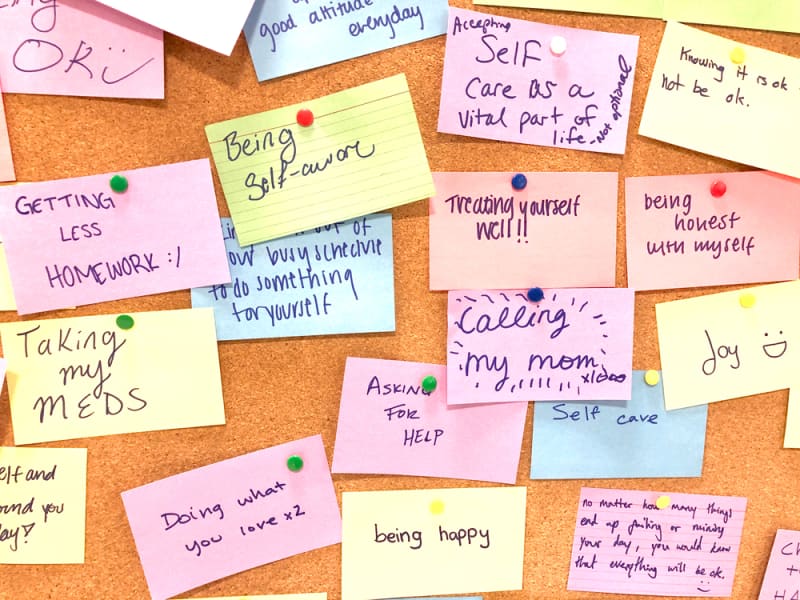 OK
good attitude
everyday
Accepting
Self
care as a
vital part of
life - Not optional
Knowing it is ok
not be ok.
Being
self-aware
GETTING
LESS
HOMEWORK :/
out of
your busy schedule
to do something
for yourself
Treating yourself
well!!
being
honest
with myself
Calling
my mom
x1000
Joy :D
Taking
my
MEDS
ASKING
FOR
HELP
Self care
and
you
Doing what
you love x2
being happy
no matter how many things
end up failing or ruining
your day, you would know
that everything will be ok.
:)